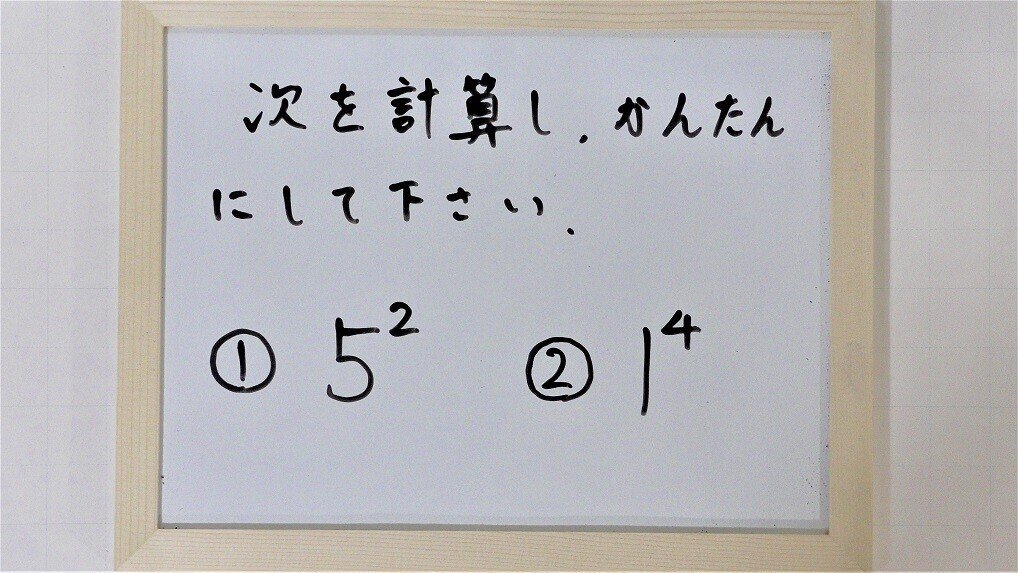 次を計算し、かんたん
にして下さい.
① 5² ② 1⁴